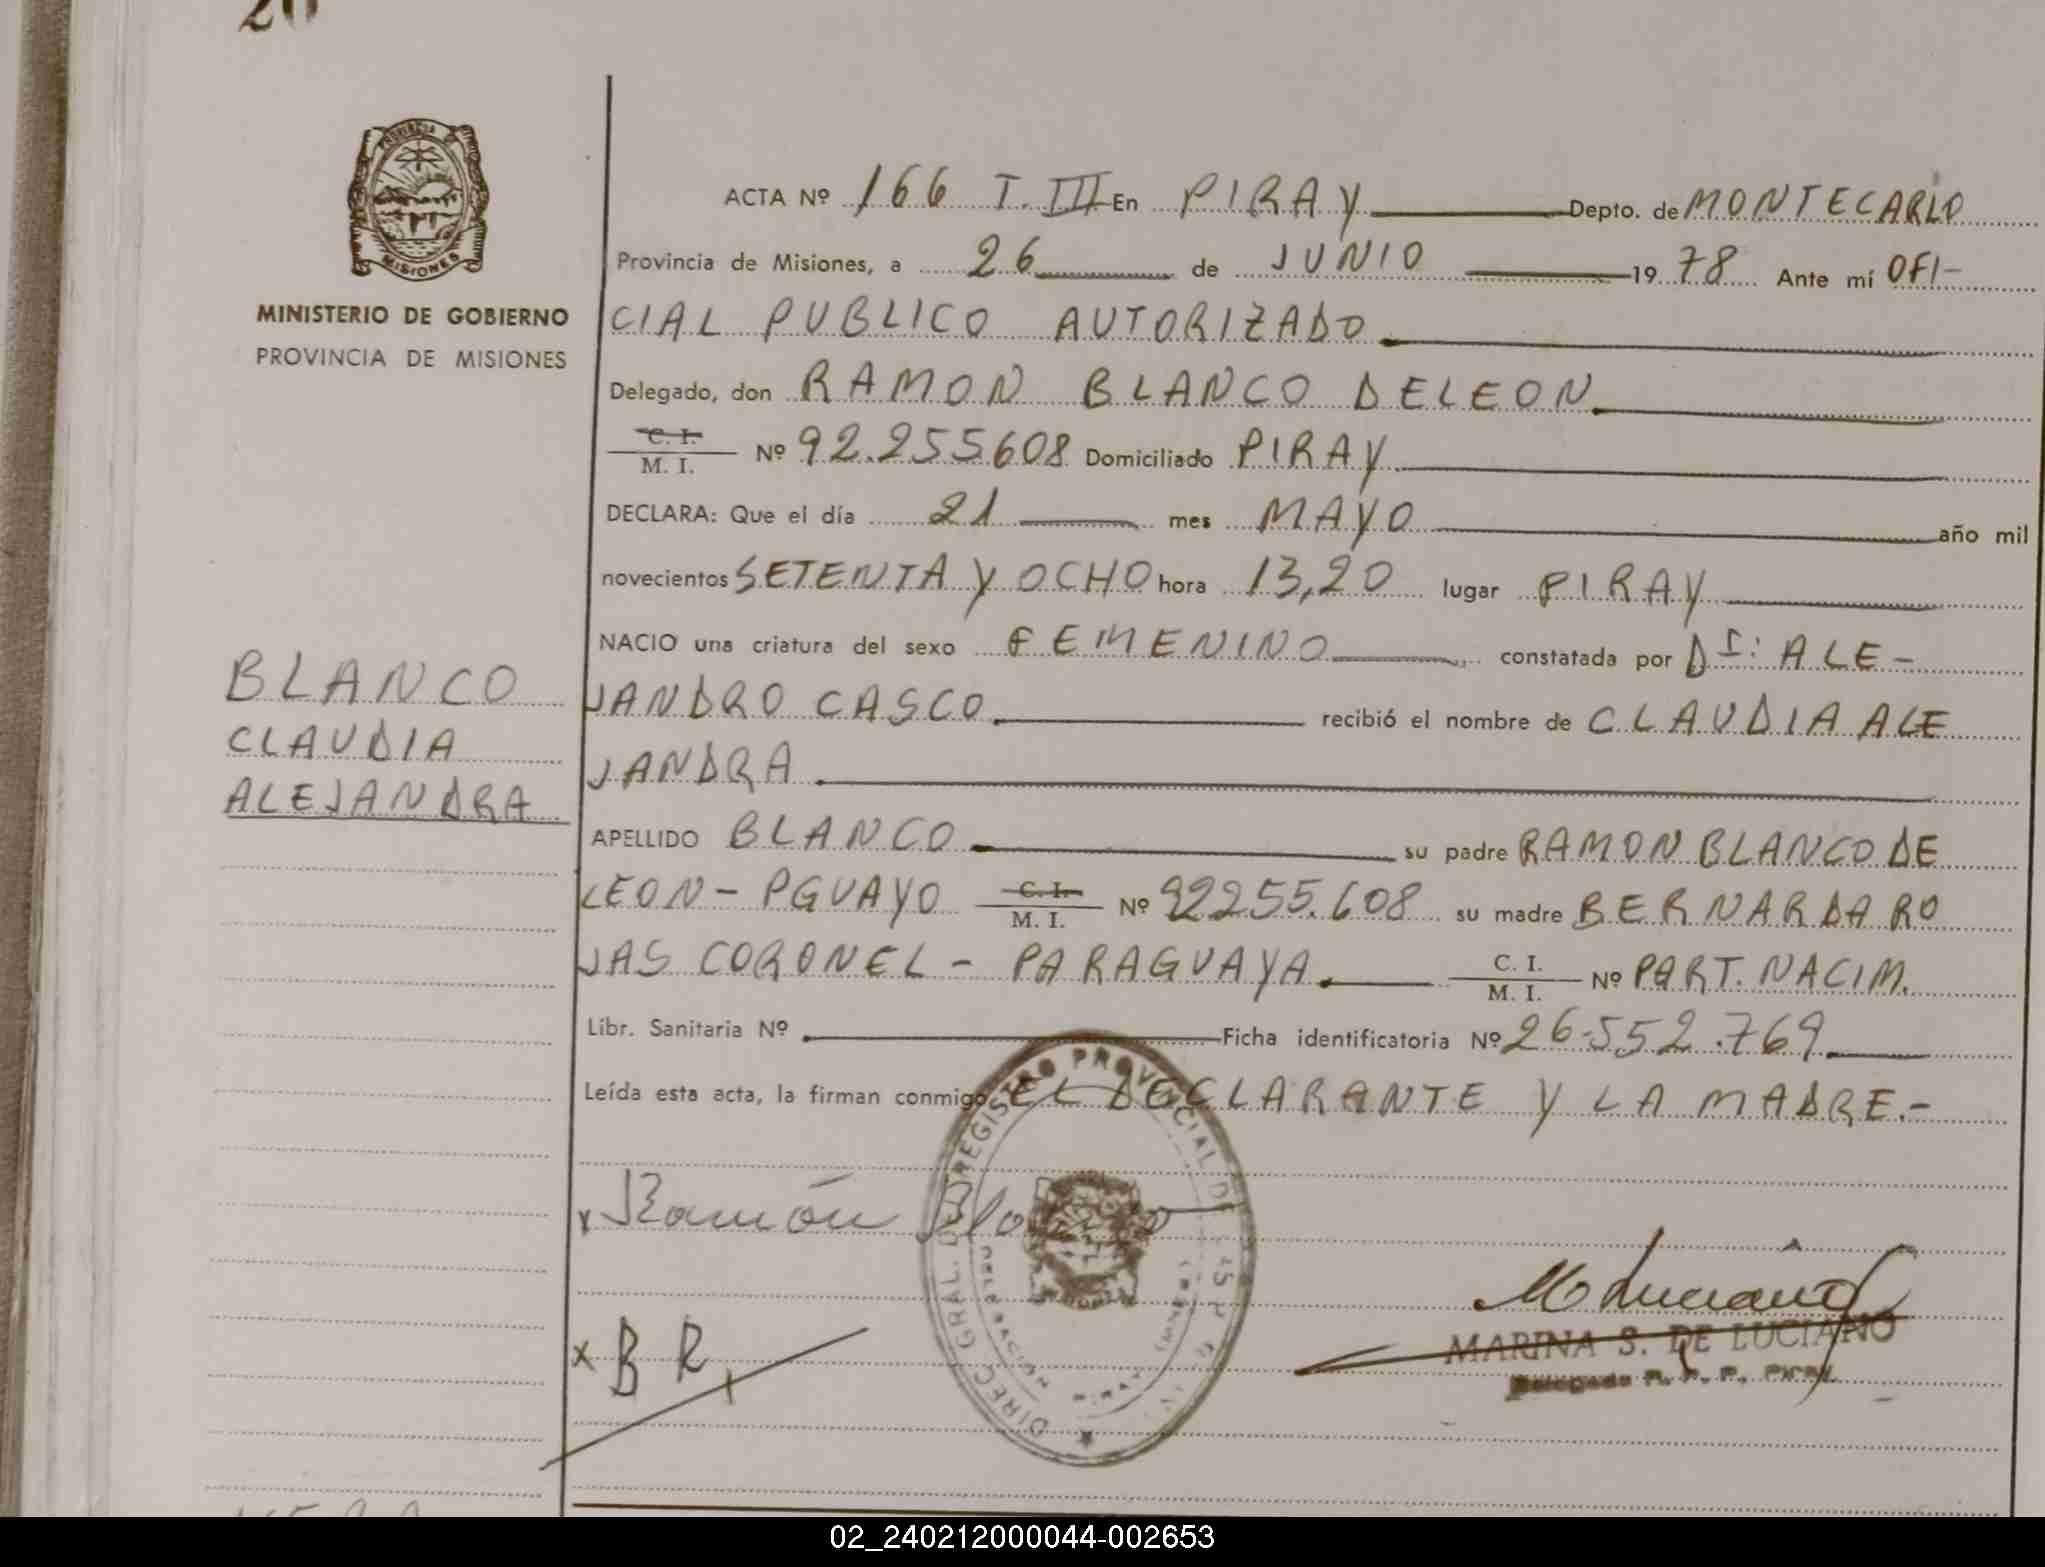 20
PROVINCIA DE
MISIONES
MINISTERIO DE GOBIERNO
PROVINCIA DE MISIONES
ACTA Nº 166 T. III En PIRAY Depto. de MONTECARLO
Provincia de Misiones, a 26 de JUNIO 1978 Ante mí OFI-
CIAL PUBLICO AUTORIZADO
Delegado, don RAMON BLANCO DELEON
C. I.
M. I. Nº 92.255.608 Domiciliado PIRAY
DECLARA: Que el día 21 mes MAYO año mil
novecientos SETENTA Y OCHO hora 13,20 lugar PIRAY
NACIO una criatura del sexo FEMENINO constatada por Dr: ALE-
JANDRO CASCO recibió el nombre de CLAUDIA ALE
JANDRA
BLANCO
CLAUDIA
ALEJANDRA
APELLIDO BLANCO su padre RAMON BLANCO DE
LEON - PGUAYO C. I. M. I. Nº 92255.608 su madre BERNARDA RO
JAS CORONEL - PARAGUAYA. C. I. M. I. Nº PART. NACIM.
Libr. Sanitaria Nº Ficha identificatoria Nº 26.552.769
Leída esta acta, la firman conmigo EL DECLARANTE Y LA MADRE.-
x Ramón Blanco
DIREC. GRAL. DEL REGISTRO PROVINCIAL DE
DELEGACION
PIRAY
M Luciano
MARINA S. DE LUCIANO
Delegada R. P. P. Piray
x B R
02_240212000044-002653